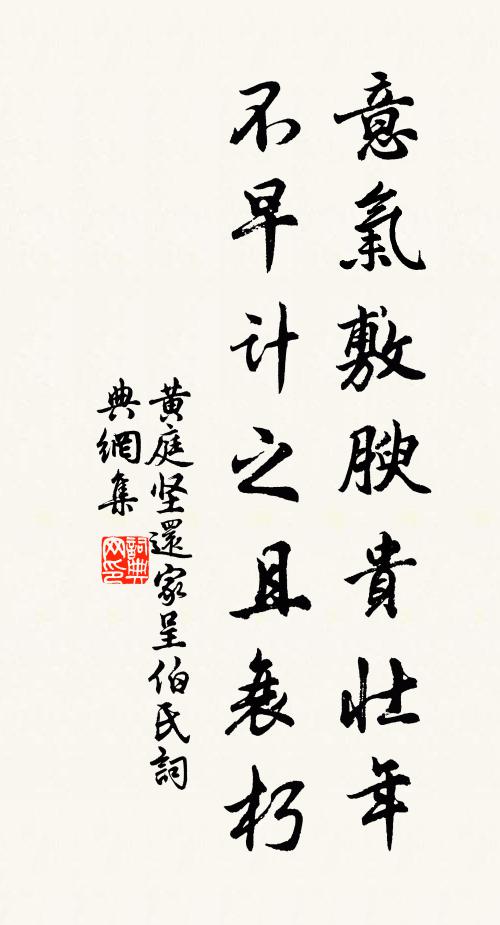 意氣敷腴貴壯年
不早计之且衰朽
黄庭坚還家呈伯氏詞
典網集
詞典网印